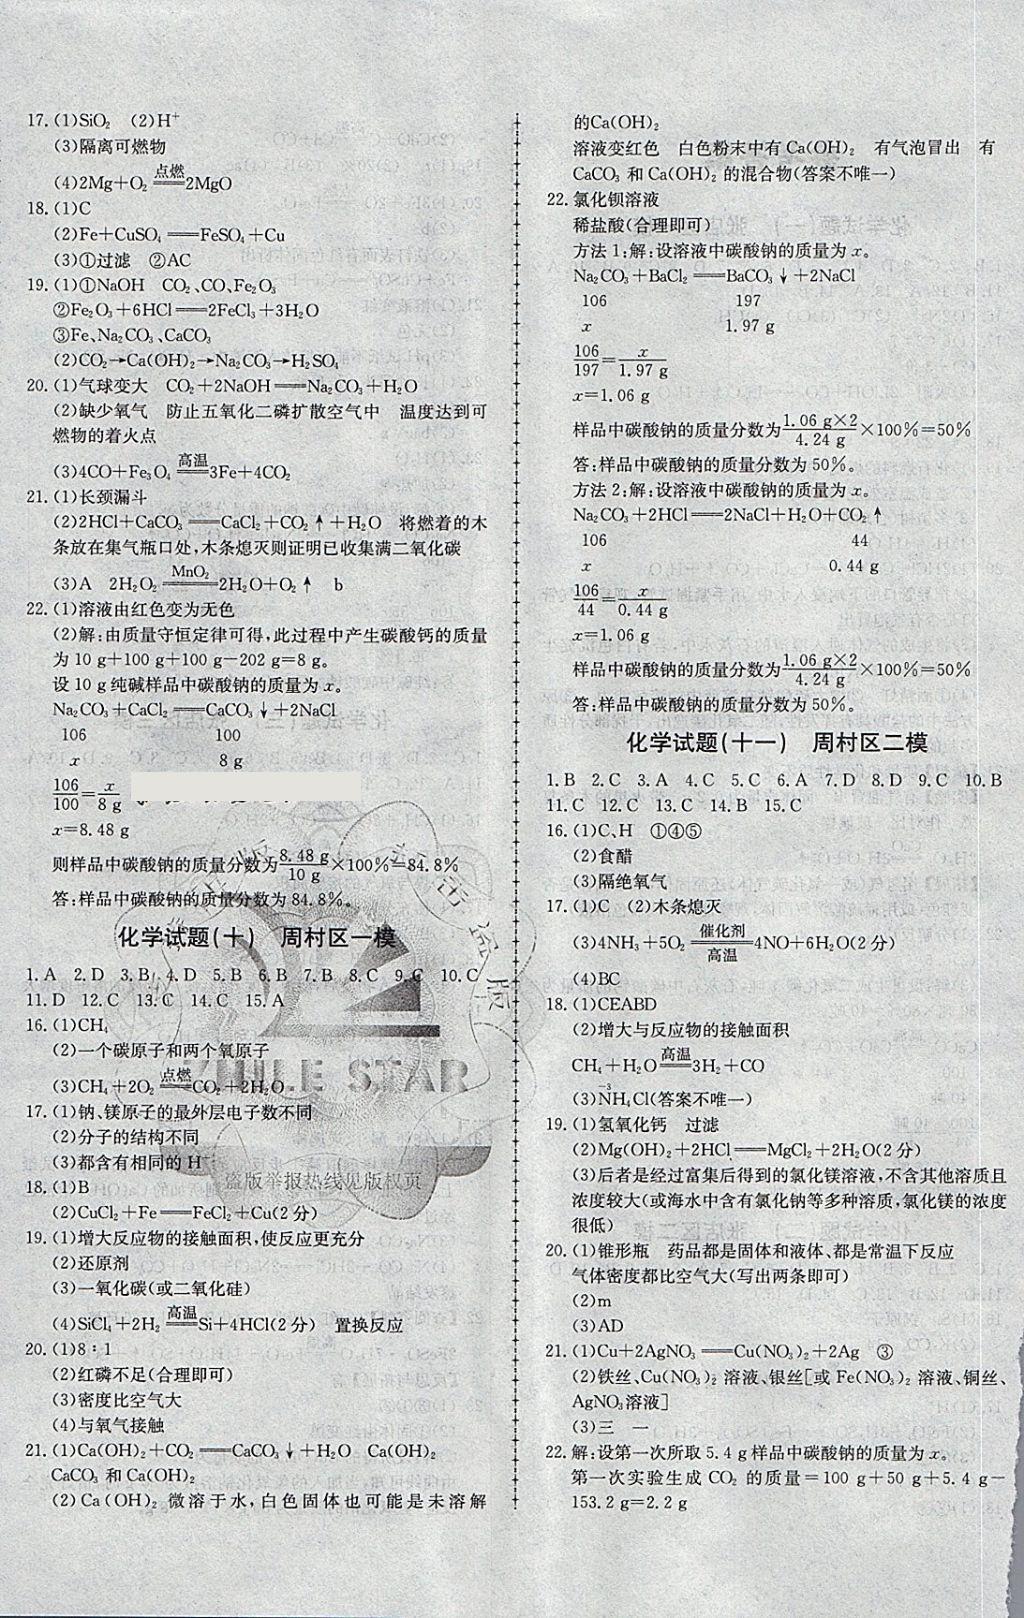 17. (1)SiO₂　(2)H⁺
(3)隔离可燃物
(4)2Mg+O₂ ══点燃══ 2MgO
18. (1)C
(2)Fe+CuSO₄══FeSO₄+Cu
(3)①过滤　②AC
19. (1)①NaOH　CO₂、CO、Fe₂O₃
②Fe₂O₃+6HCl══2FeCl₃+3H₂O
③Fe、Na₂CO₃、CaCO₃
(2)CO₂→Ca(OH)₂→Na₂CO₃→H₂SO₄
20. (1)气球变大　CO₂+2NaOH══Na₂CO₃+H₂O
(2)缺少氧气　防止五氧化二磷扩散空气中　温度达到可
燃物的着火点
(3)4CO+Fe₃O₄ ══高温══ 3Fe+4CO₂
21. (1)长颈漏斗
(2)2HCl+CaCO₃══CaCl₂+CO₂↑+H₂O　将燃着的木
条放在集气瓶口处,木条熄灭则证明已收集满二氧化碳
(3)A　2H₂O₂ ══MnO₂══ 2H₂O+O₂↑　b
22. (1)溶液由红色变为无色
(2)解:由质量守恒定律可得,此过程中产生碳酸钙的质量
为 10 g+100 g+100 g-202 g=8 g。
设 10 g 纯碱样品中碳酸钠的质量为 x。
Na₂CO₃+CaCl₂══CaCO₃↓+2NaCl
106　100
x　8 g
106/100=x/8 g
x=8.48 g
则样品中碳酸钠的质量分数为 8.48 g/10 g ×100%=84.8%
答:样品中碳酸钠的质量分数为 84.8%。
化学试题(十)　周村区一模
1. A　2. D　3. B　4. D　5. B　6. B　7. B　8. C　9. C　10. C
11. D　12. C　13. C　14. C　15. A
16. (1)CH₄
(2)一个碳原子和两个氧原子
(3)CH₄+2O₂ ══点燃══ CO₂+2H₂O
17. (1)钠、镁原子的最外层电子数不同
(2)分子的结构不同
(3)都含有相同的 H⁺
盗版举报热线见版权页
18. (1)B
(2)CuCl₂+Fe══FeCl₂+Cu(2 分)
19. (1)增大反应物的接触面积,使反应更充分
(2)还原剂
(3)一氧化碳(或二氧化硅)
(4)SiCl₄+2H₂ ══高温══ Si+4HCl(2 分)　置换反应
20. (1)8∶1
(2)红磷不足(合理即可)
(3)密度比空气大
(4)与氧气接触
21. (1)Ca(OH)₂+CO₂══CaCO₃↓+H₂O　Ca(OH)₂
CaCO₃ 和 Ca(OH)₂
(2)Ca(OH)₂ 微溶于水,白色固体也可能是未溶解
的Ca(OH)₂
溶液变红色　白色粉末中有 Ca(OH)₂　有气泡冒出　有
CaCO₃ 和 Ca(OH)₂ 的混合物(答案不唯一)
22. 氯化钡溶液
稀盐酸(合理即可)
方法 1:解:设溶液中碳酸钠的质量为 x。
Na₂CO₃+BaCl₂══BaCO₃↓+2NaCl
106　197
x　1.97 g
106/197=x/1.97 g
x=1.06 g
样品中碳酸钠的质量分数为 1.06 g×2/4.24 g ×100%=50%
答:样品中碳酸钠的质量分数为 50%。
方法 2:解:设溶液中碳酸钠的质量为 x。
Na₂CO₃+2HCl══2NaCl+H₂O+CO₂↑
106　44
x　0.44 g
106/44=x/0.44 g
x=1.06 g
样品中碳酸钠的质量分数为 1.06 g×2/4.24 g ×100%=50%
答:样品中碳酸钠的质量分数为 50%。
化学试题(十一)　周村区二模
1. B　2. C　3. A　4. C　5. C　6. A　7. D　8. D　9. C　10. B
11. C　12. C　13. C　14. B　15. C
16. (1)C、H　①④⑤
(2)食醋
(3)隔绝氧气
17. (1)C　(2)木条熄灭
(3)4NH₃+5O₂ ══催化剂/高温══ 4NO+6H₂O(2 分)
(4)BC
18. (1)CEABD
(2)增大与反应物的接触面积
CH₄+H₂O ══高温══ 3H₂+CO
-3
(3)NH₄Cl(答案不唯一)
19. (1)氢氧化钙　过滤
(2)Mg(OH)₂+2HCl══MgCl₂+2H₂O(2 分)
(3)后者是经过富集后得到的氯化镁溶液,不含其他溶质且
浓度较大(或海水中含有氯化钠等多种溶质,氯化镁的浓度
很低)
20. (1)锥形瓶　药品都是固体和液体、都是常温下反应
气体密度都比空气大(写出两条即可)
(2)m
(3)AD
21. (1)Cu+2AgNO₃══Cu(NO₃)₂+2Ag　③
(2)铁丝、Cu(NO₃)₂ 溶液、银丝[或 Fe(NO₃)₂ 溶液、铜丝、
AgNO₃溶液]
(3)三　一
22. 解:设第一次所取 5.4 g 样品中碳酸钠的质量为 x。
第一次实验生成 CO₂ 的质量=100 g+50 g+5.4 g-
153.2 g=2.2 g